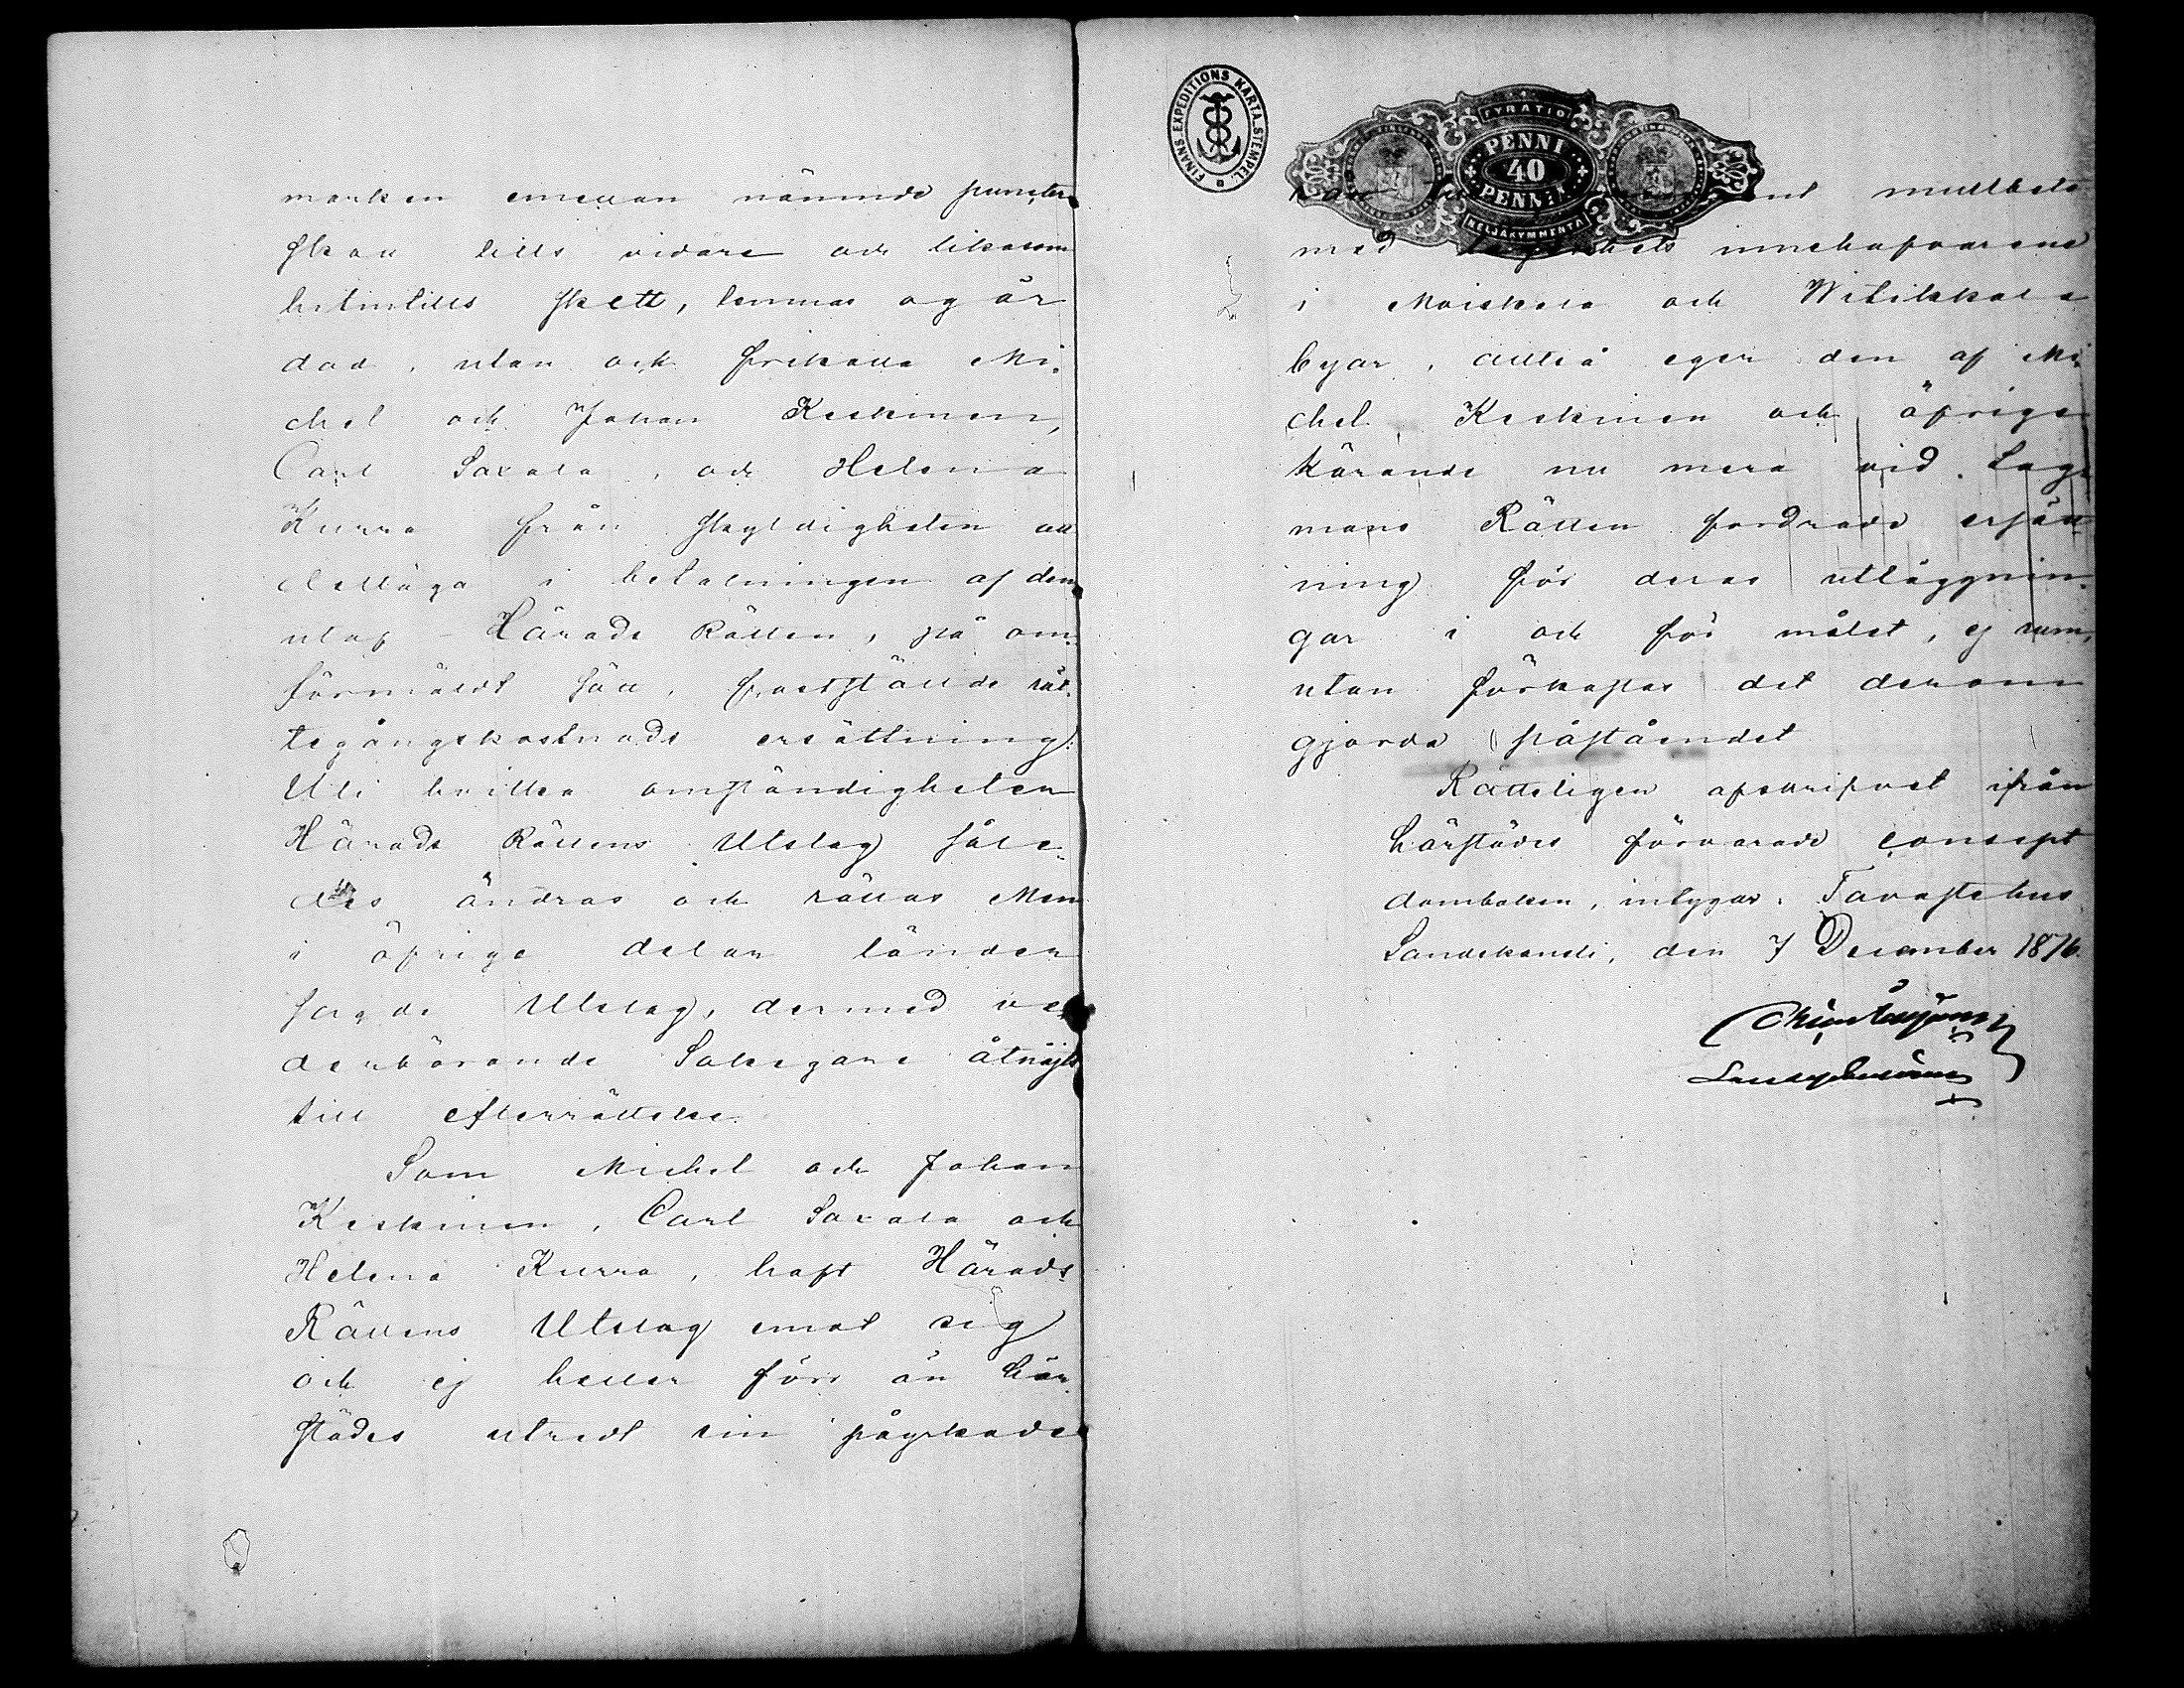 marken emellan nämnde puncter
skall tills vidare och likasom
hitintills skett, lemnas ogär
dad, utan ock frikalla Mi-
chel och Johan Keskinen,
Carl Saxala, och Helena
Kurra från skyldigheten att
deltaga i betalningen af den
utaf Härads Rätten, på om-
förmäldt sätt, fastställde rät-
tegångskostnads ersättning:
Uti hvilka omständigheter
Härads Rättens Utslag såle-
des ändras och rättas Men
i öfrige delar länder
sagde Utslag, dermed ve-
derbörande Sakegare åtnöjts
till efterrättelse.
Som Michel och Johan
Keskinen, Carl Saxala och
Helena Kurra, haft Härads
Rättens Utslag emot sig
och ej heller förr än här-
städes utredt sin påyrkade
FINANS EXPEDITIONS KARTA STEMPEL
FYRATIO
PENNI
40
PENNIÄ
NELJÄKYMMENTÄ
med innehafvarene
i Moiskala och Witikkala
byar, alltså eger den af Mi-
chel Keskinen och öfrige
kärande nu mera vid Lag-
mans Rätten fordrade ersätt-
ning för deras utläggnin-
gar i och för målet, ej rum,
utan förkastas det derom
gjorda påståendet
Rätteligen afskrifvet ifrån
härstädes förvarade concept
domboken, intygar. Tavastehus
Landskansli, den 7 December 1876.